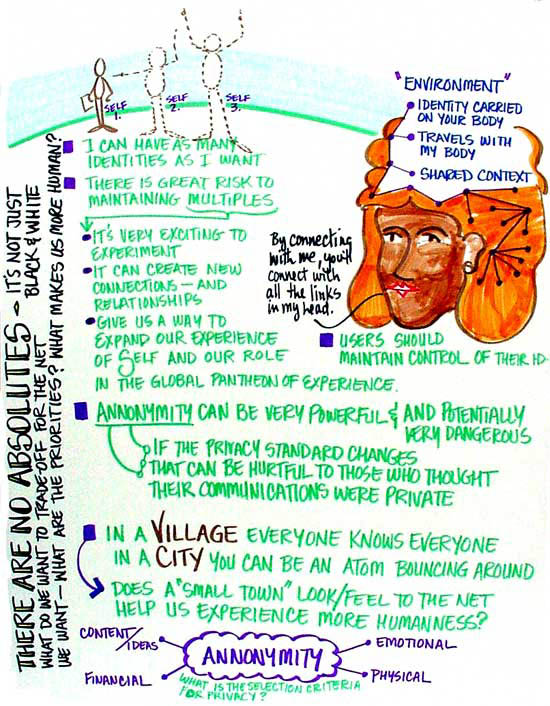 SELF 1.
SELF 2.
SELF 3.
I CAN HAVE AS MANY
IDENTITIES AS I WANT
THERE IS GREAT RISK TO
MAINTAINING MULTIPLES
IT'S VERY EXCITING TO
EXPERIMENT
IT CAN CREATE NEW
CONNECTIONS — AND
RELATIONSHIPS
GIVE US A WAY TO
EXPAND OUR EXPERIENCE
OF SELF AND OUR ROLE
IN THE GLOBAL PANTHEON OF EXPERIENCE.
"ENVIRONMENT"
IDENTITY CARRIED
ON YOUR BODY
TRAVELS WITH
MY BODY
SHARED CONTEXT
By connecting
with me, you'll
connect with
all the links
in my head.
USERS SHOULD
MAINTAIN CONTROL OF THEIR ID.
ANNONYMITY CAN BE VERY POWERFUL & AND POTENTIALLY
VERY DANGEROUS
IF THE PRIVACY STANDARD CHANGES
THAT CAN BE HURTFUL TO THOSE WHO THOUGHT
THEIR COMMUNICATIONS WERE PRIVATE
IN A VILLAGE EVERYONE KNOWS EVERYONE
IN A CITY YOU CAN BE AN ATOM BOUNCING AROUND
DOES A "SMALL TOWN" LOOK/FEEL TO THE NET
HELP US EXPERIENCE MORE HUMANNESS?
CONTENT/
IDEAS
EMOTIONAL
ANNONYMITY
FINANCIAL
PHYSICAL
WHAT IS THE SELECTION CRITERIA
FOR PRIVACY?
THERE ARE NO ABSOLUTES - IT'S NOT JUST
BLACK & WHITE
WHAT DO WE WANT TO TRADE-OFF FOR THE NET
WE WANT — WHAT ARE THE PRIORITIES? WHAT MAKES US MORE HUMAN?